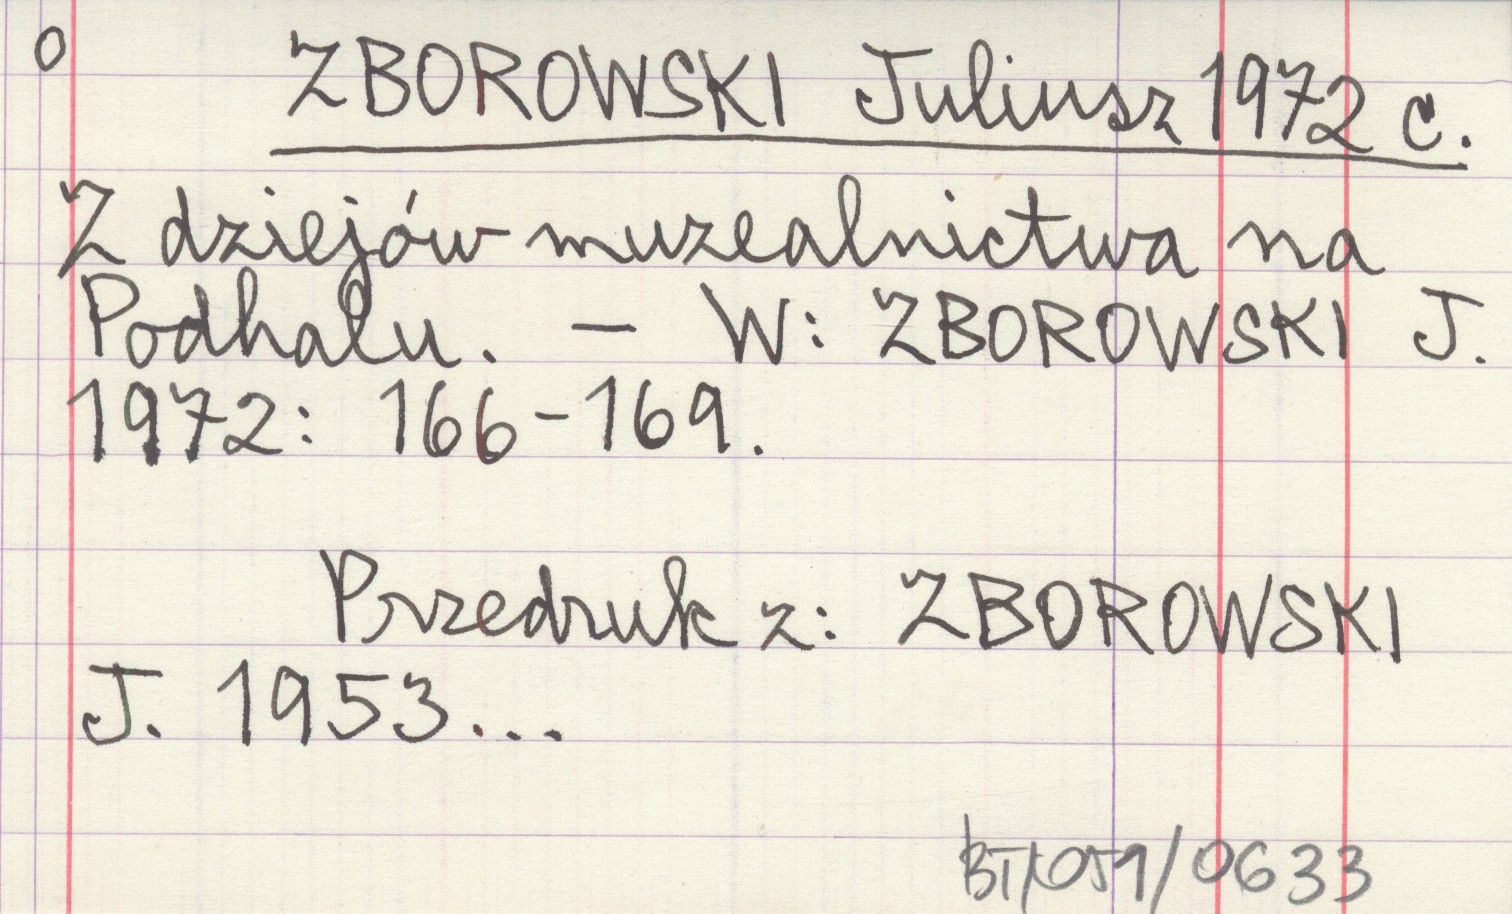 o ZBOROWSKI Juliusz 1972 c.
Z dziejów muzealnictwa na
Podhalu. — W: ZBOROWSKI J.
1972: 166-169.
Przedruk z: ZBOROWSKI
J. 1953...
BT/059/0633